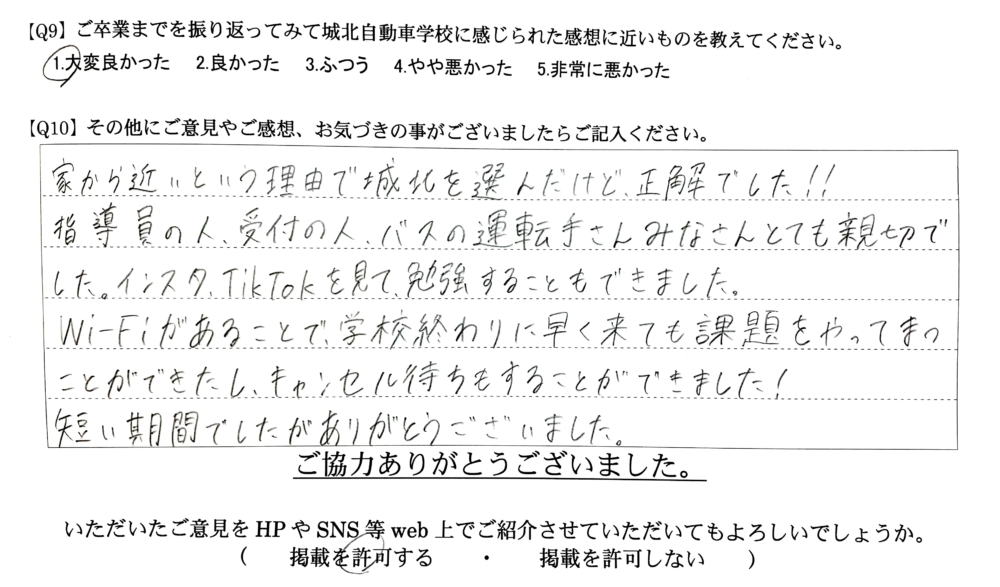 【Q9】ご卒業までを振り返ってみて城北自動車学校に感じられた感想に近いものを教えてください。
1.大変良かった 2.良かった 3.ふつう 4.やや悪かった 5.非常に悪かった
【Q10】その他にご意見やご感想、お気づきの事がございましたらご記入ください。
家から近いという理由で城北を選んだけど、正解でした!!
指導員の人、受付の人、バスの運転手さんみなさんとても親切で
した。インスタ、TikTokを見て、勉強することもできました。
Wi-Fiがあることで、学校終わりに早く来ても課題をやってまつ
ことができたし、キャンセル待ちもすることができました!
短い期間でしたがありがとうございました。
ご協力ありがとうございました。
いただいたご意見をHPやSNS等web上でご紹介させていただいてもよろしいでしょうか。
( 掲載を許可する ・ 掲載を許可しない )